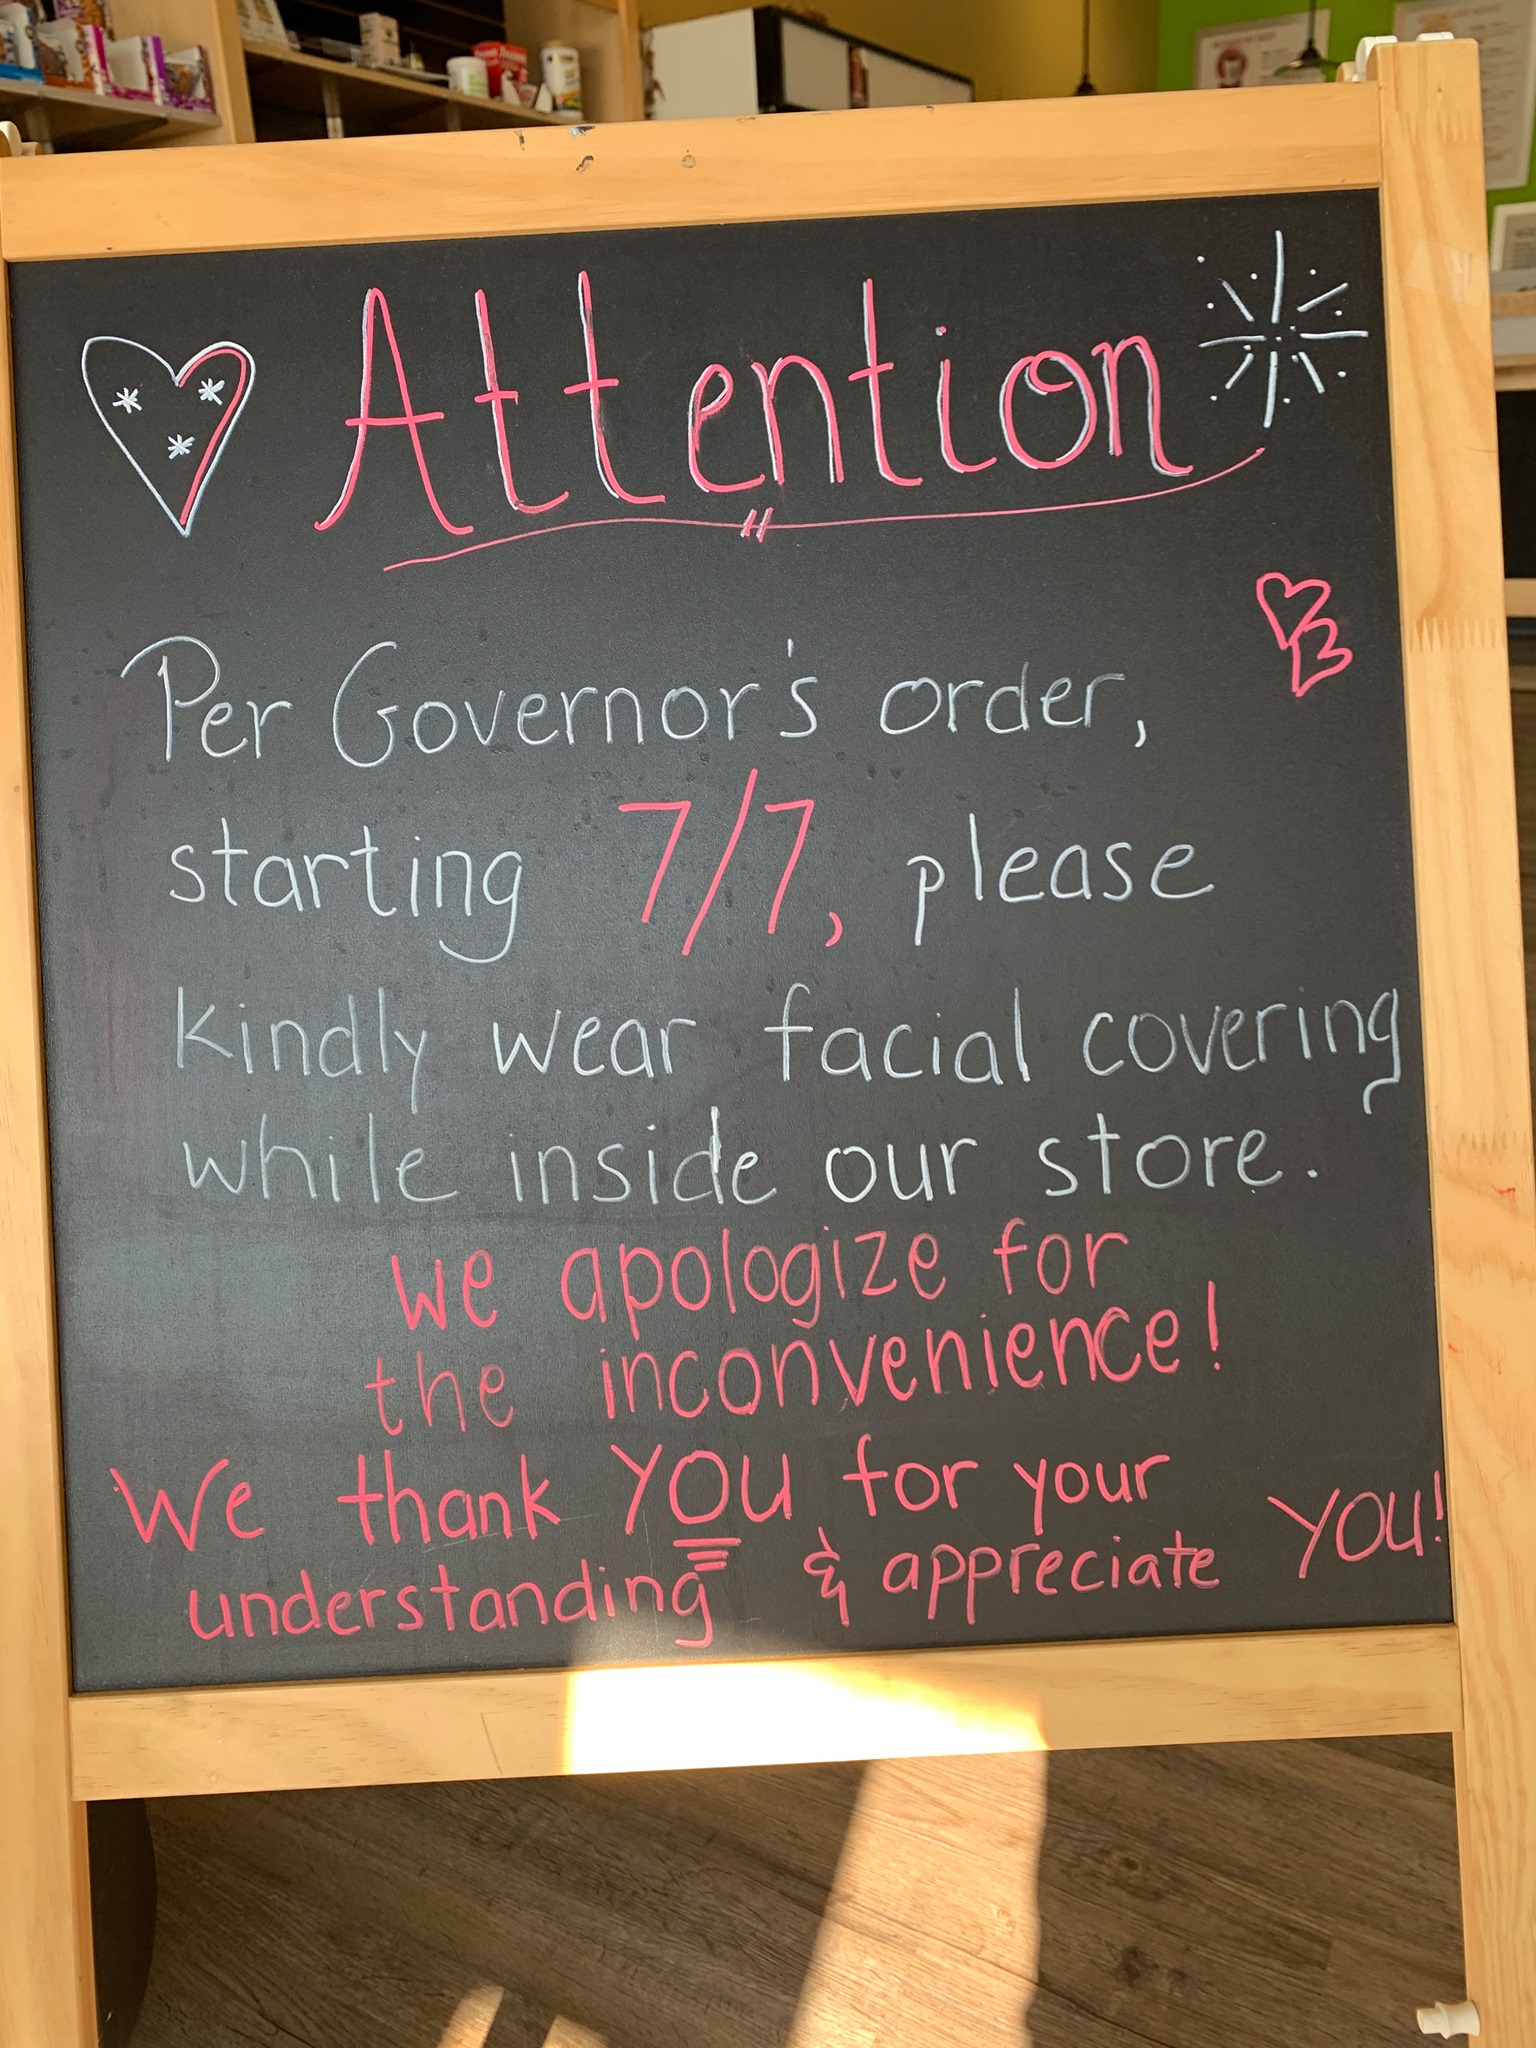 Attention
Per Governor's order,
starting 7/7, please
kindly wear facial covering
while inside our store.
we apologize for
the inconvenience!
We thank YOU for your
understanding & appreciate YOU!